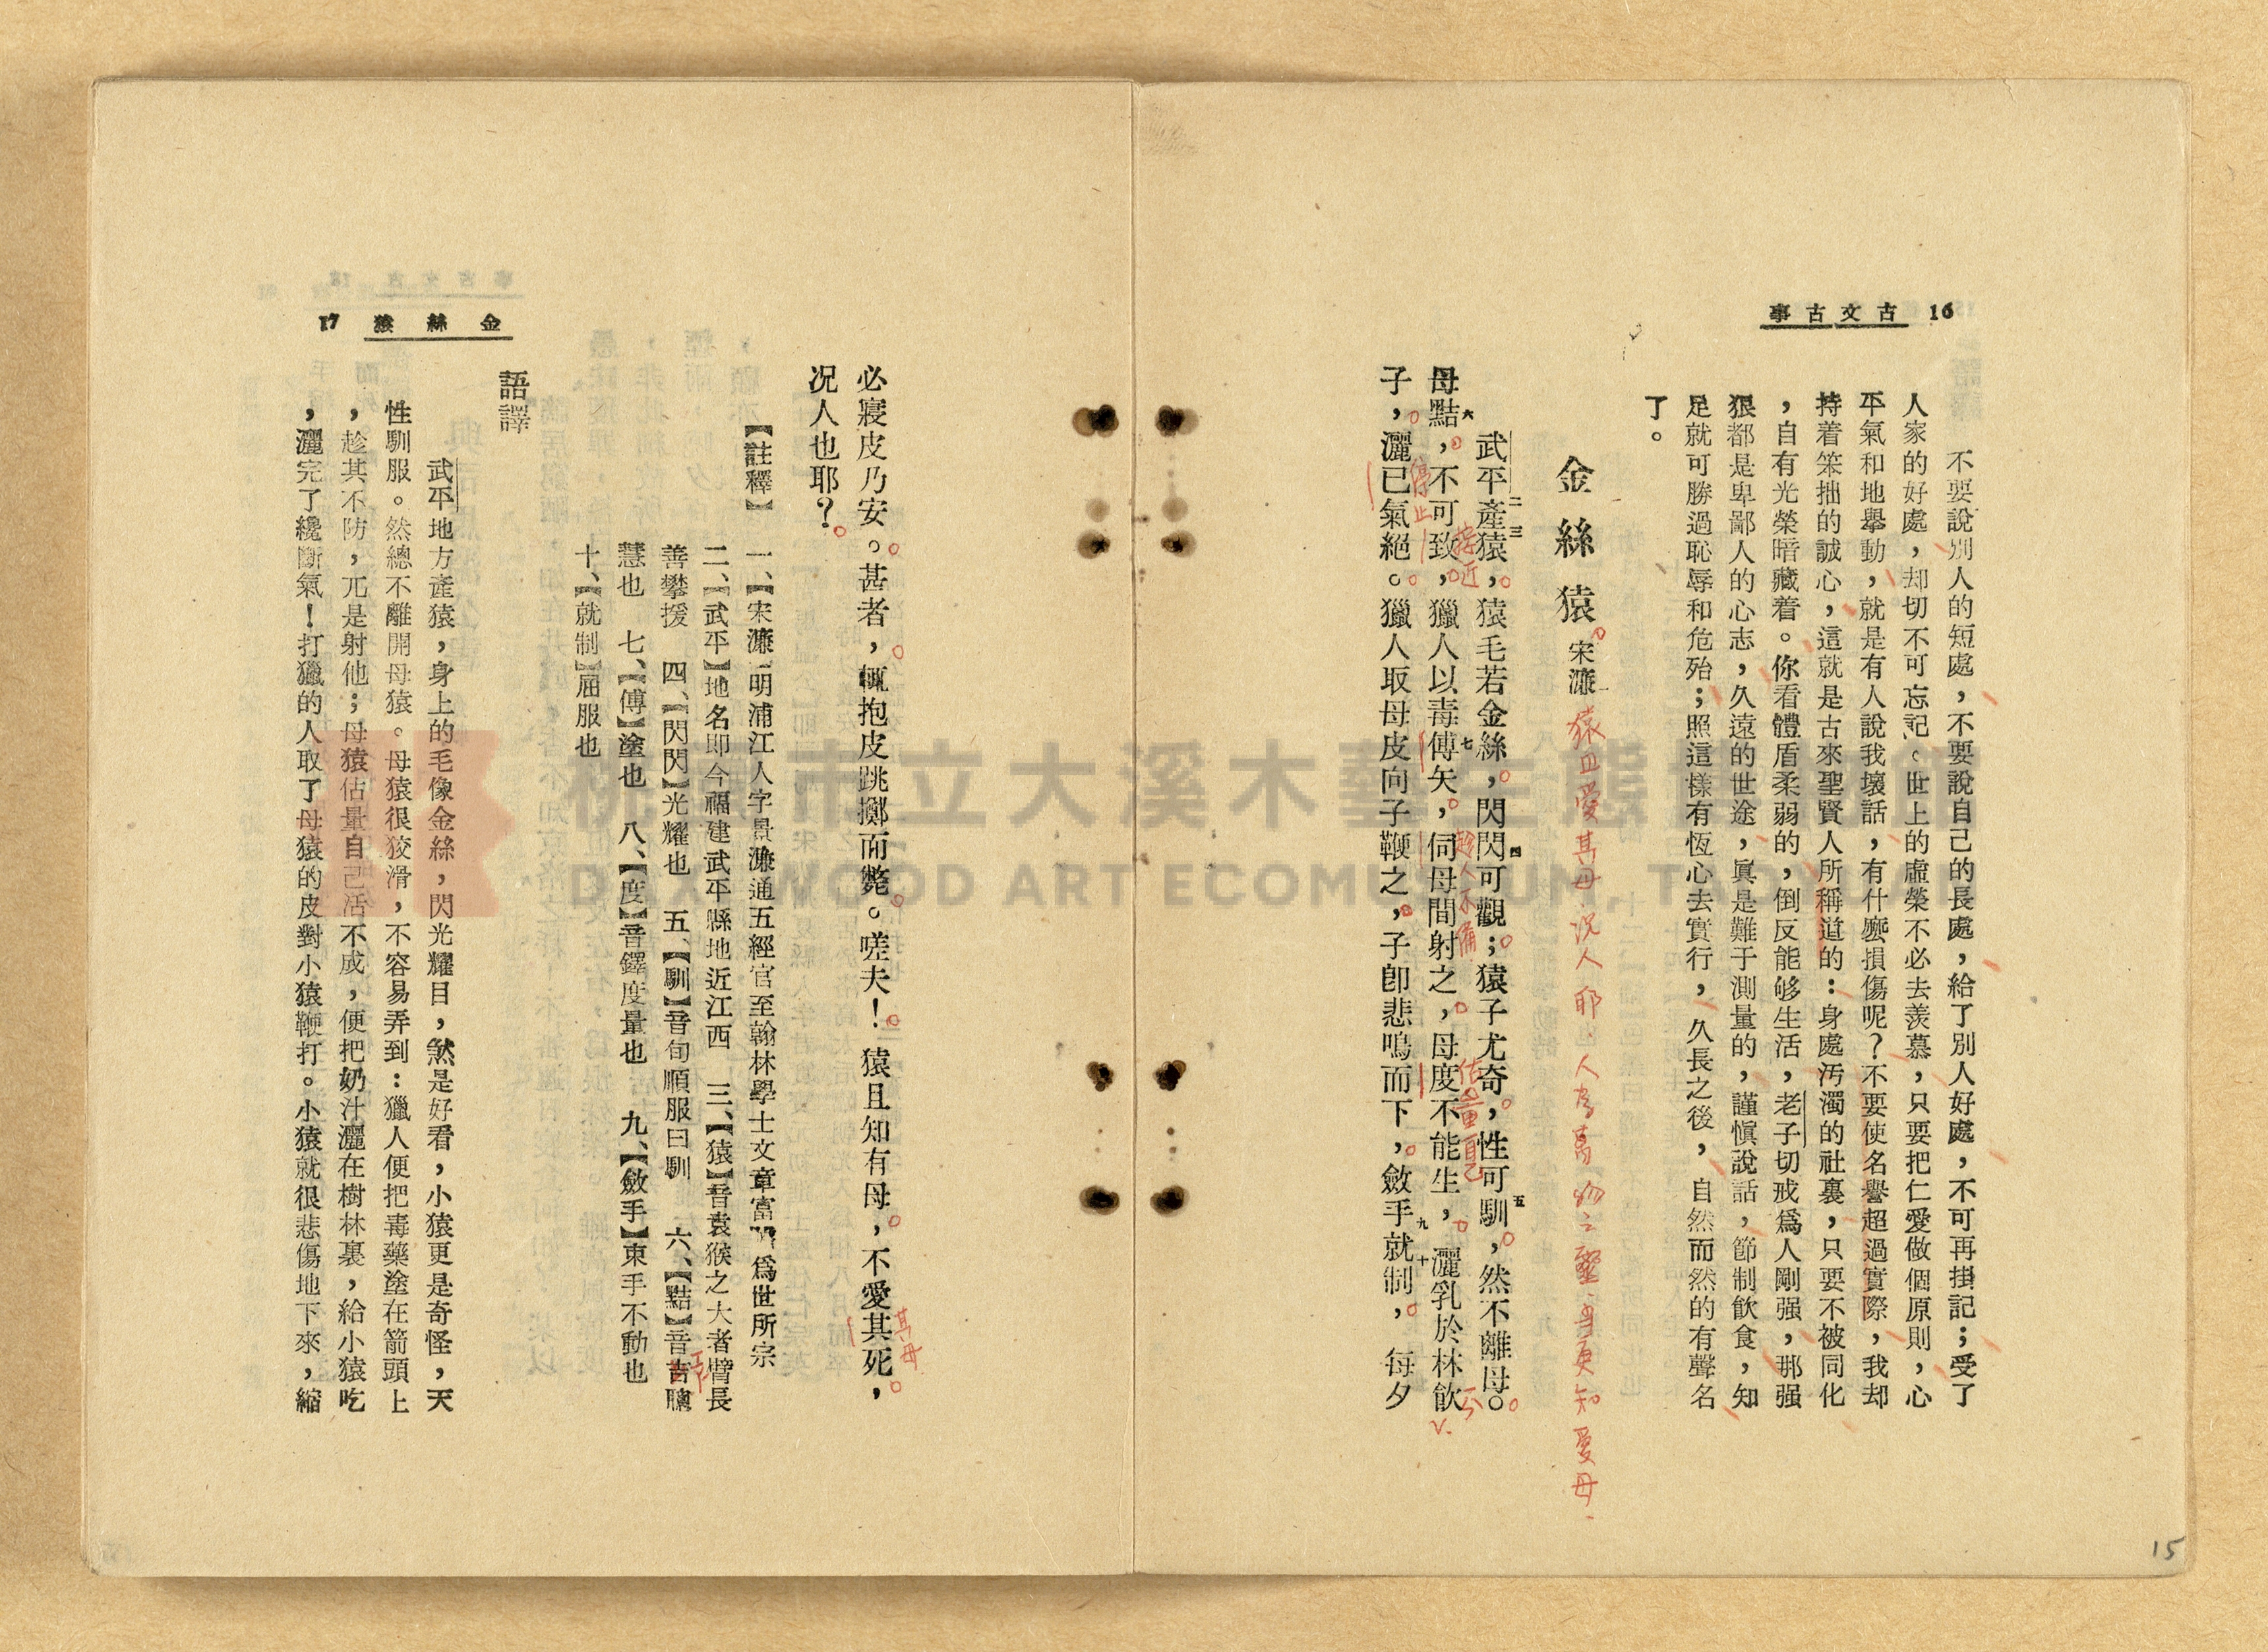 16 古文古事
不要說別人的短處，不要說自己的長處，給了別人好處，不可再掛記；受了
人家的好處，却切不可忘記。世上的虛榮不必去羨慕，只要把仁愛做個原則，心
平氣和地舉動，就是有人說我壞話，有什麼損傷呢？不要使名譽超過實際，我却
持着笨拙的誠心，這就是古來聖賢人所稱道的：身處汚濁的社裏，只要不被同化
，自有光榮暗藏着。你看體盾柔弱的，倒反能够生活，老子切戒爲人剛强，那强
狠都是卑鄙人的心志，久遠的世途，眞是難于測量的，謹愼說話，節制飮食，知
足就可勝過恥辱和危殆；照這樣有恆心去實行，久長之後，自然而然的有聲名
了。
金絲猿 宋濂
猿且愛其母況人耶．人為萬物之聖．手更知愛母．
武平產猿，猿毛若金絲，閃閃可觀；猿子尤奇，性可馴，然不離母。
二 三 四 五
接近 趁人不備 估量自己
母黠，不可致，獵人以毒傅矢，伺母間射之，母度不能生，灑乳於林飮
六 七
停止
子，灑已氣絕。獵人取母皮向子鞭之，子卽悲鳴而下，斂手就制，每夕
九 十
金絲猿 17
必寢皮乃安。甚者，輒抱皮跳擲而斃。嗟夫！猿且知有母，不愛其死，
其母
況人也耶？
【註釋】 一、【宋濂】明浦江人字景濂通五經官至翰林學士文章富 爲世所宗
二、【武平】地名卽今福建武平縣地近江西 三、【猿】音袁猴之大者臂長
善攀援 四、【閃閃】光耀也 五、【馴】音旬順服曰馴 六、【黠】音吉聰
慧也 七、【傅】塗也 八、【度】音鐸度量也 九、【斂手】束手不動也
十、【就制】屈服也
語譯
武平地方產猿，身上的毛像金絲，閃光耀目，煞是好看，小猿更是奇怪，天
性馴服。然總不離開母猿。母猿很狡滑，不容易弄到：獵人便把毒藥塗在箭頭上
，趁其不防，兀是射他；母猿估量自己活不成，便把奶汁灑在樹林裏，給小猿吃
，灑完了纔斷氣！打獵的人取了母猿的皮對小猿鞭打。小猿就很悲傷地下來，縮
15
桃園市立大溪木藝生態博物館
DAXI WOOD ART ECOMUSEUM, TAOYUAN